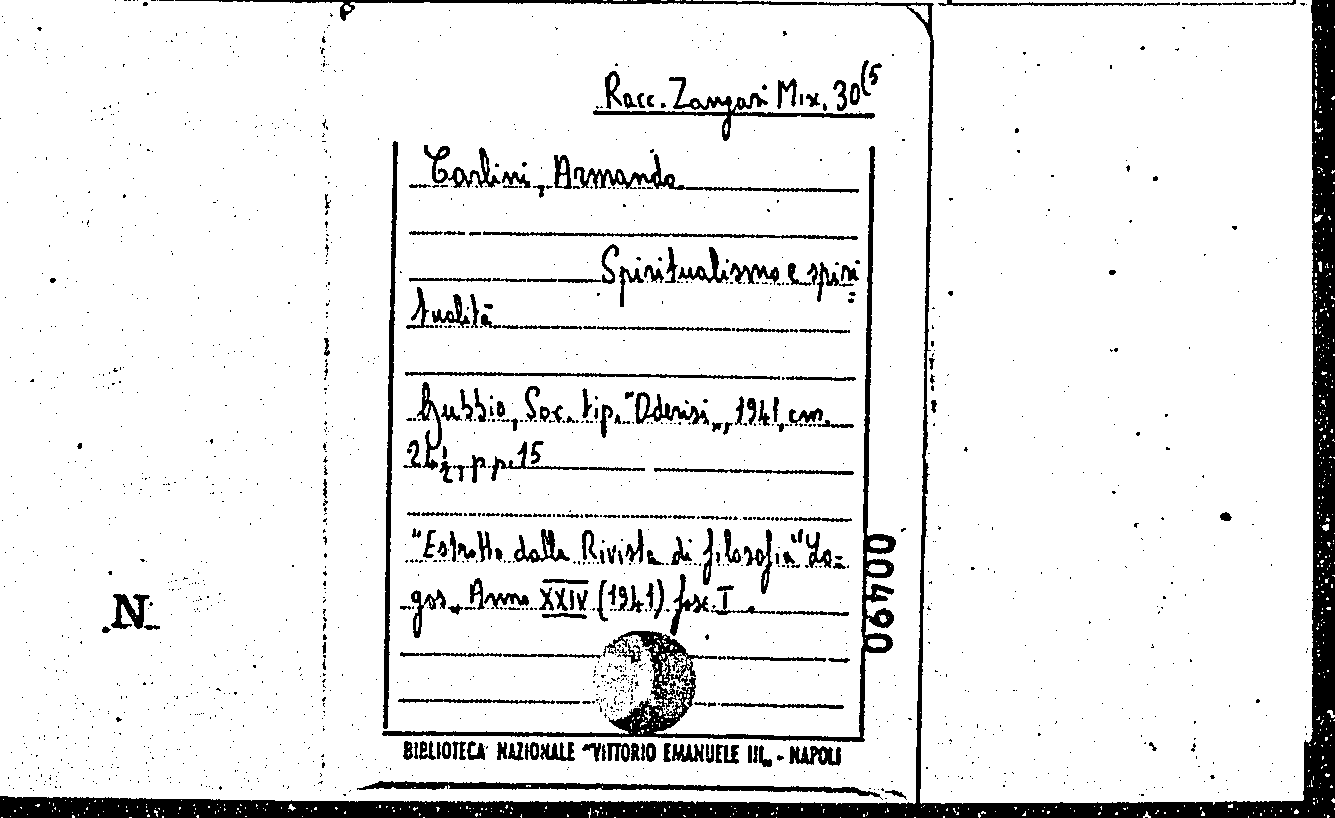 Racc. Zangari Mix. 30(5
Carlini, Armando
Spiritualismo e spiri=
tualità
Gubbio, Soc. tip. "Oderisi„, 1941, cm.
24½, pp. 15
"Estratto dalla Rivista di filosofia "Lo=
gos„ Anno XXIV (1941) fasc. I.
00490
N
BIBLIOTECA NAZIONALE "VITTORIO EMANUELE III„ - NAPOLI